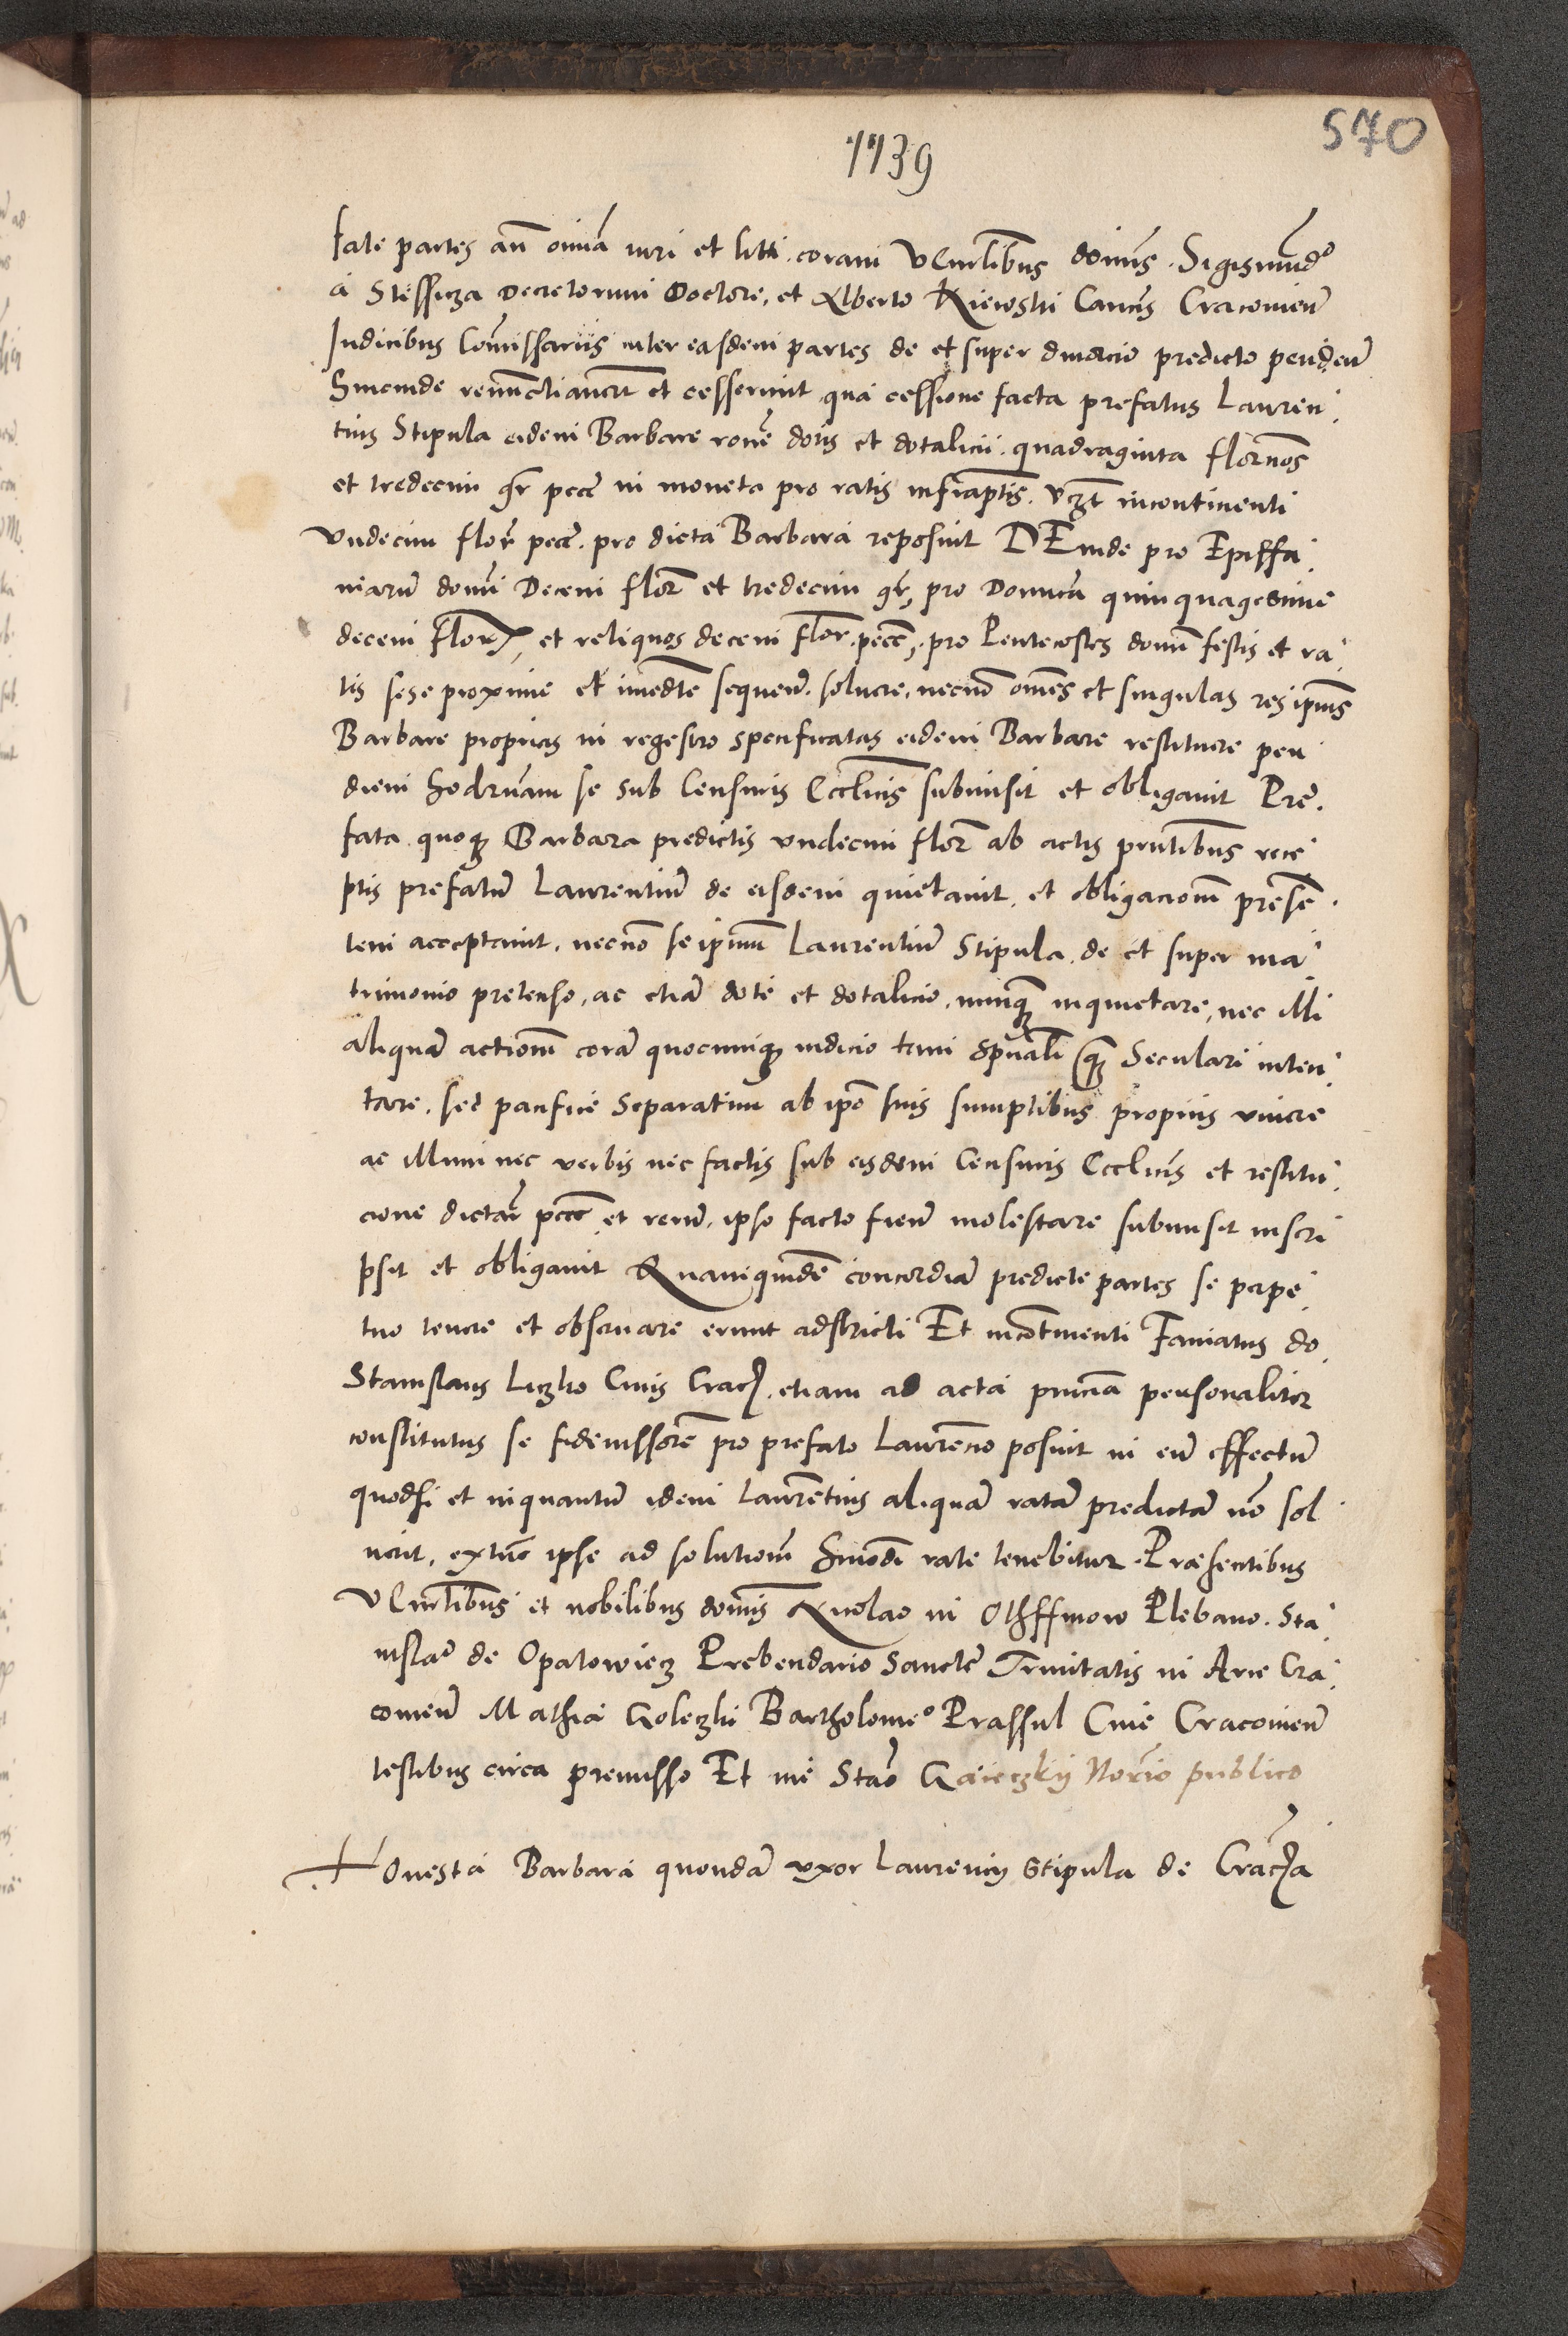 570
1139
fate partes añ omiã iuri et litti. coram Vẽnlibus dominis. Sigismũdo
à Stèssicza Decretorum Doctore, et Alberto Kiiewski Canõcis Cracouieñ
Judicibus Cõmissariis inter easdem partes de et super diuorcio predicto pendeñ
huiusmodi renũctiauerũt et cesserunt, qua cessione facta prefatus Lauren
tius Stipula eidem Barbare rõne dotis et dotalicii. quadraginta florẽnos
et tredecim gr pecẽ in moneta pro ratis infrascriptis. Vczt incontinenti
Vndecim florẽ pecẽ. pro dicta Barbara reposuit DEinde pro Epiffa
niarũ domĩ Decem florẽ et tredecim gr, pro Dominica quinquagesime
decem floreñ, et reliquos decem flor. pecẽ,. pro Pentecostes domĩ festis et ra
tis sese proxime et imediẽte sequeñ. soluere, necnõ omẽs et singulas res ipius
Barbare proprias in regestro specificatas eidem Barbare restituere pen
diem hodiernam se sub Censuris Ecclicis submisit et obligauit Pre
fata quoq̃ Barbara predictis vndecim florẽ ab actis pñtibus rece
ptis prefatũ Laurentiũ de eisdem quietauit, et obligacionẽ presẽ
tem acceptauit, necnõ se ipsum Laurentiũ Stipula de et super ma
trimonio pretenso, ac etiã dote et dotalicio, nunq̃ inquietare, nec illi
aliquã actionẽ corã quocunq̃ iudicio tam spũali q̃ Seculari inten
tare, sed pacifice separatim ab ipõ suis sumptibus propriis viuere
ac illum nec verbis nec factis sub eisdem Censuris Ecclicis et restitu
cione dictaȓ pecẽ et reruȓ, ipso facto fieñ molestare submisit inscri
psit et obligauit Quamquidẽ concordiã predicte partes se perpe
tuo tenere et obseruare erunt adstricti Et incontinenti Famatus do.
Stanislaus Liczko Ciuis Crac. etiam ad acta pñcia personaliter
constitutus se fideiussorẽ pro prefato Laurẽcio posuit in eũ effectũ
quodsi et inquantũ idem Laurẽtius aliquã ratã predictã nõ sol
uerit, extũc ipse ad solutionẽ hmõdi rate tenebitur. Præsentibus
Vẽnlibus et nobilibus dominis Nicolao in Othffinow Plebano. Sta
nislao de Opatowiecz Prebendario Sancte Trinitatis in Arce Cra
couieñ Mathia Goleczki Bartholomeo Prassul Ciue Cracouieñ
testibus circa premisso Et me Stão Gaieczkij Notario publico
Honesta Barbara quondã vxor Laurencij Stipula de Crac̃ia